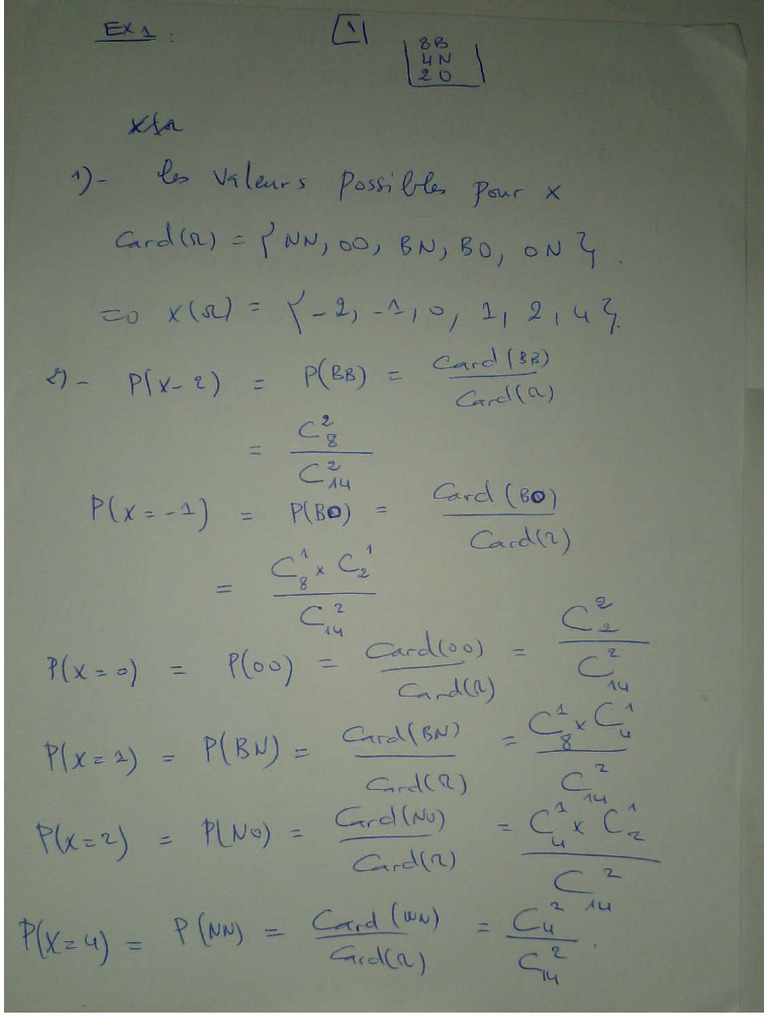 EX 1 :
1
8B
4N
2O
1)- les valeurs possibles pour X
Card(Ω) = { NN, OO, BN, BO, ON }.
=> X(Ω) = { -2, -1, 0, 1, 2, 4 }.
2)- P(X-2) = P(BB) = Card(BB) / Card(Ω)
= C_8^2 / C_14^2
P(X=-1) = P(BO) = Card(BO) / Card(Ω)
= C_8^1 × C_2^1 / C_14^2
P(X=0) = P(OO) = Card(OO) / Card(Ω) = C_2^2 / C_14^2
P(X=1) = P(BN) = Card(BN) / Card(Ω) = C_8^1 × C_4^1 / C_14^2
P(X=2) = P(NO) = Card(NO) / Card(Ω) = C_4^1 × C_2^1 / C_14^2
P(X=4) = P(NN) = Card(NN) / Card(Ω) = C_4^2 / C_14^2.